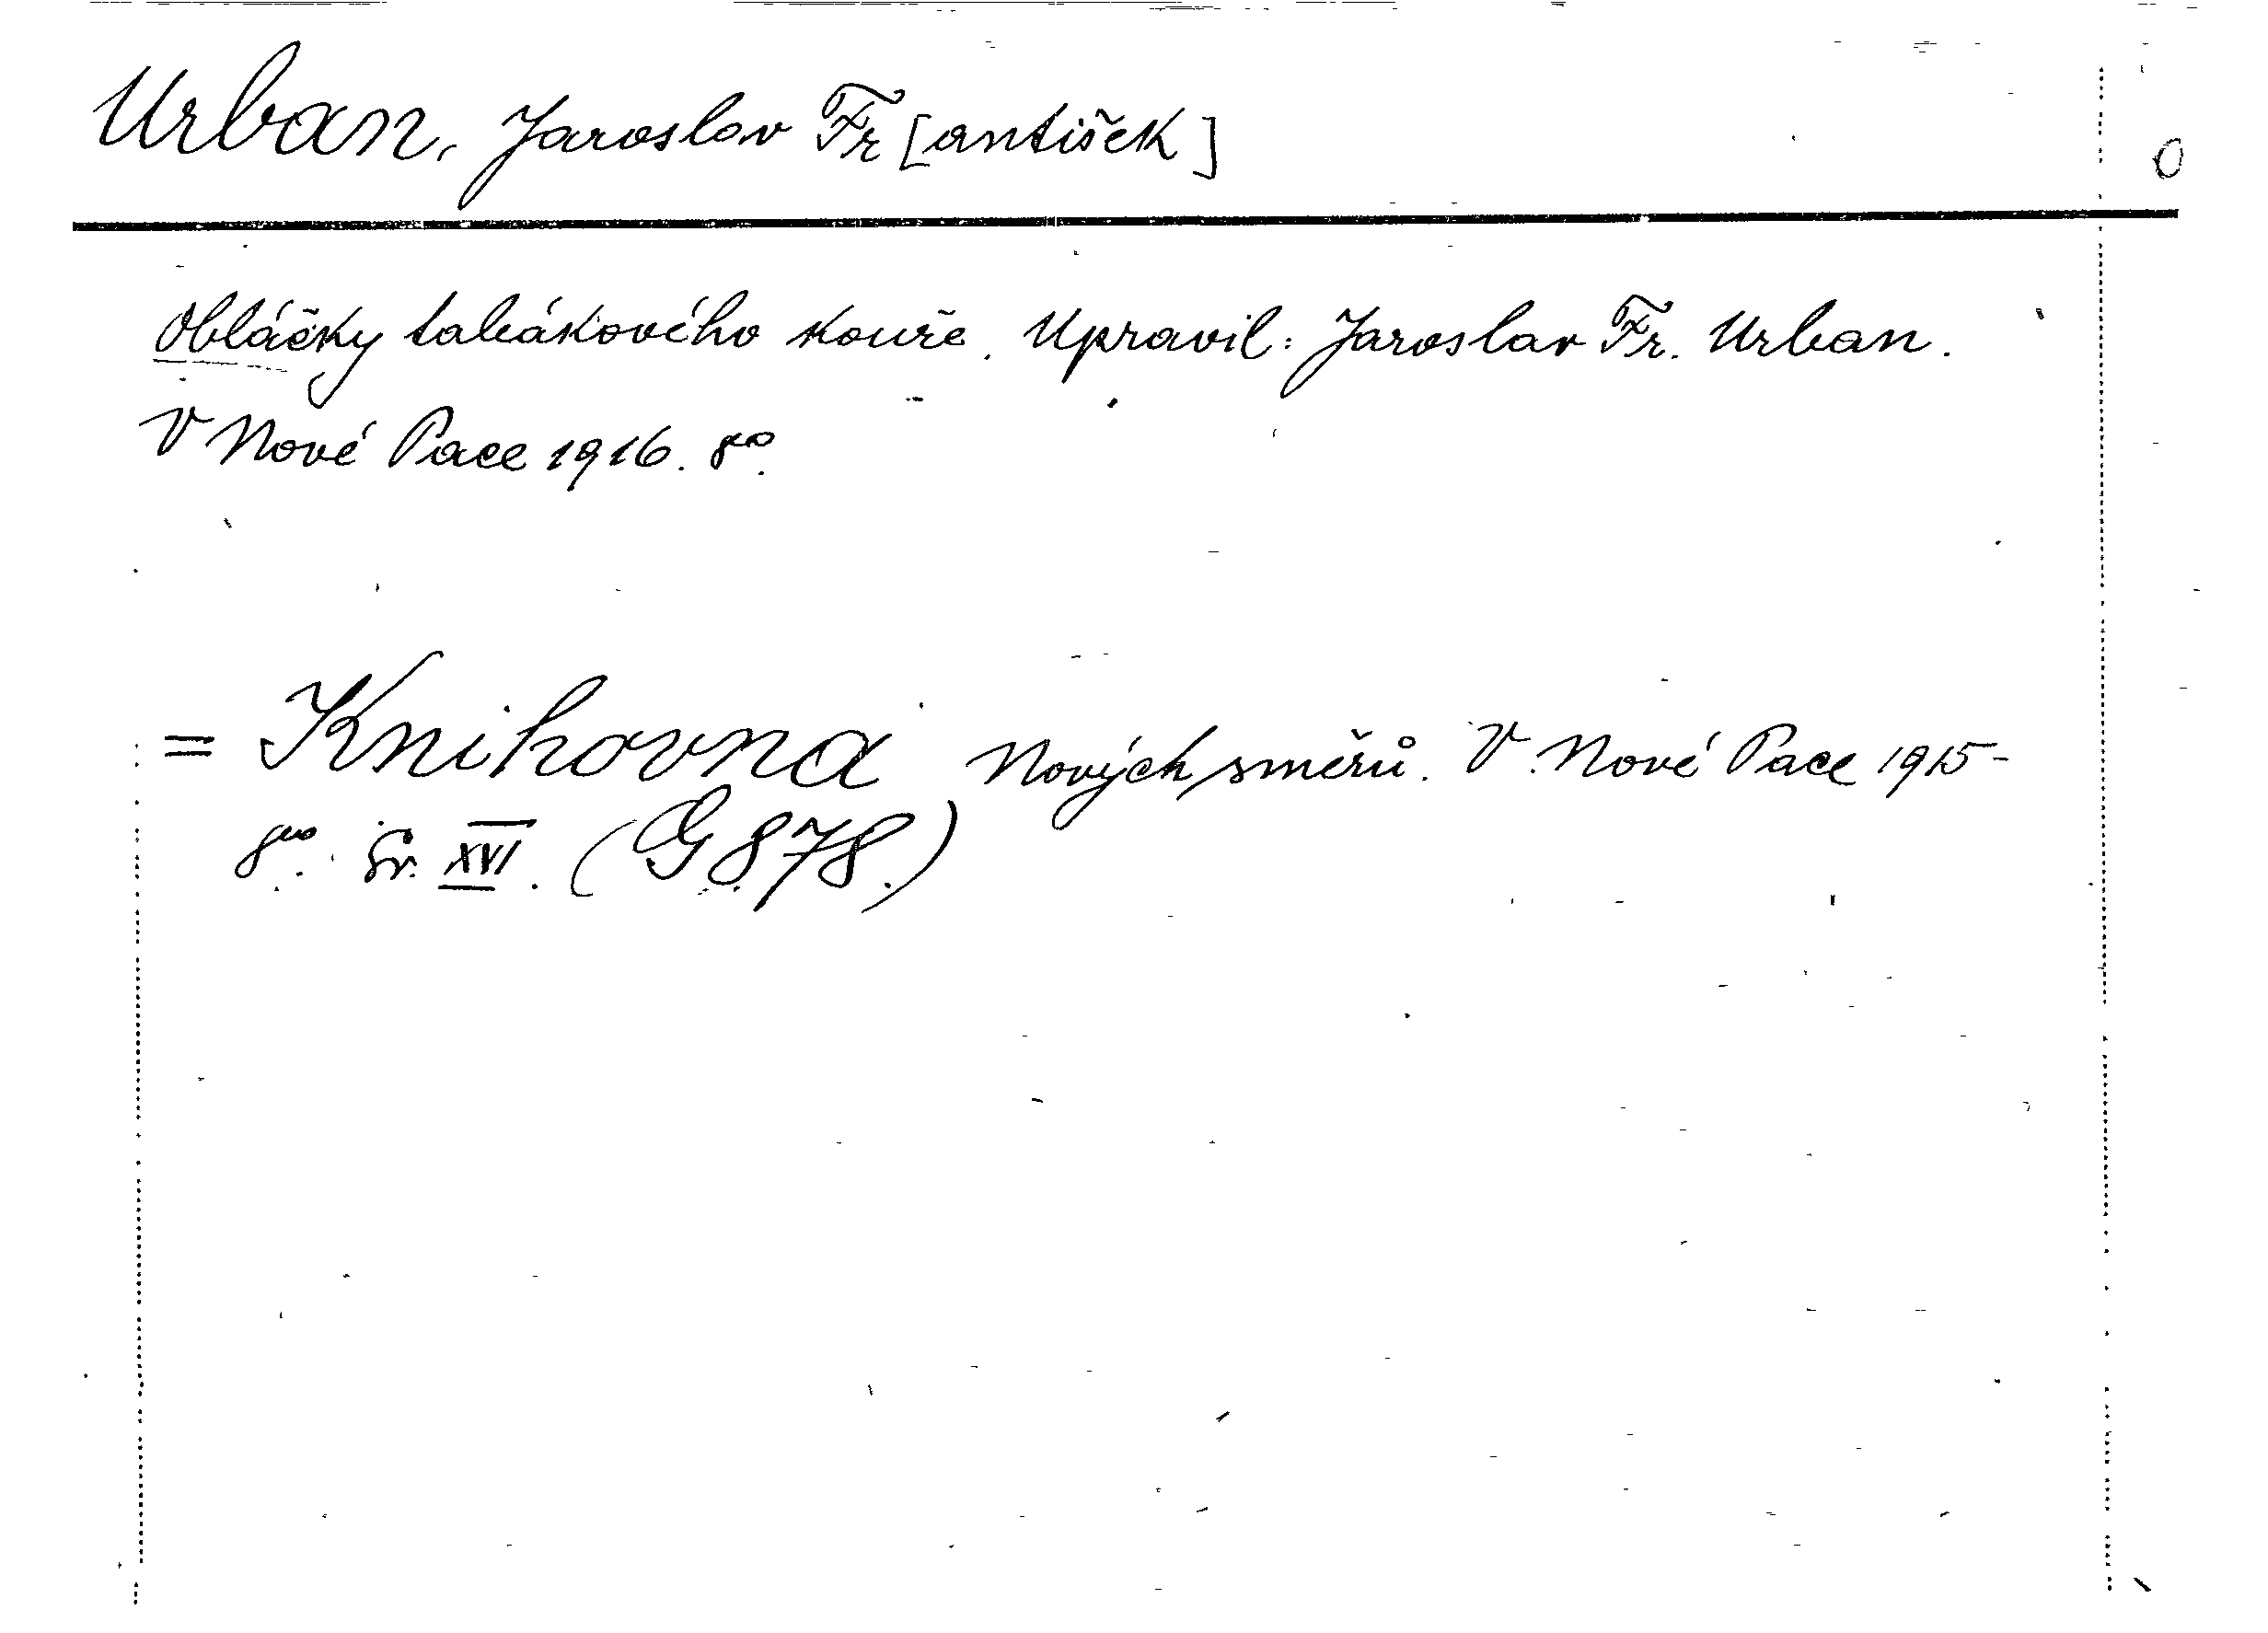 Urban, Jaroslav Fr[antišek]
0
Obláčky tabákového kouře. Upravil: Jaroslav Fr. Urban.
V Nové Pace 1916. 8vo.
= Knihovna Nových směrů. V Nové Pace 1915-
8vo. Sv. XVI. (G 878.)